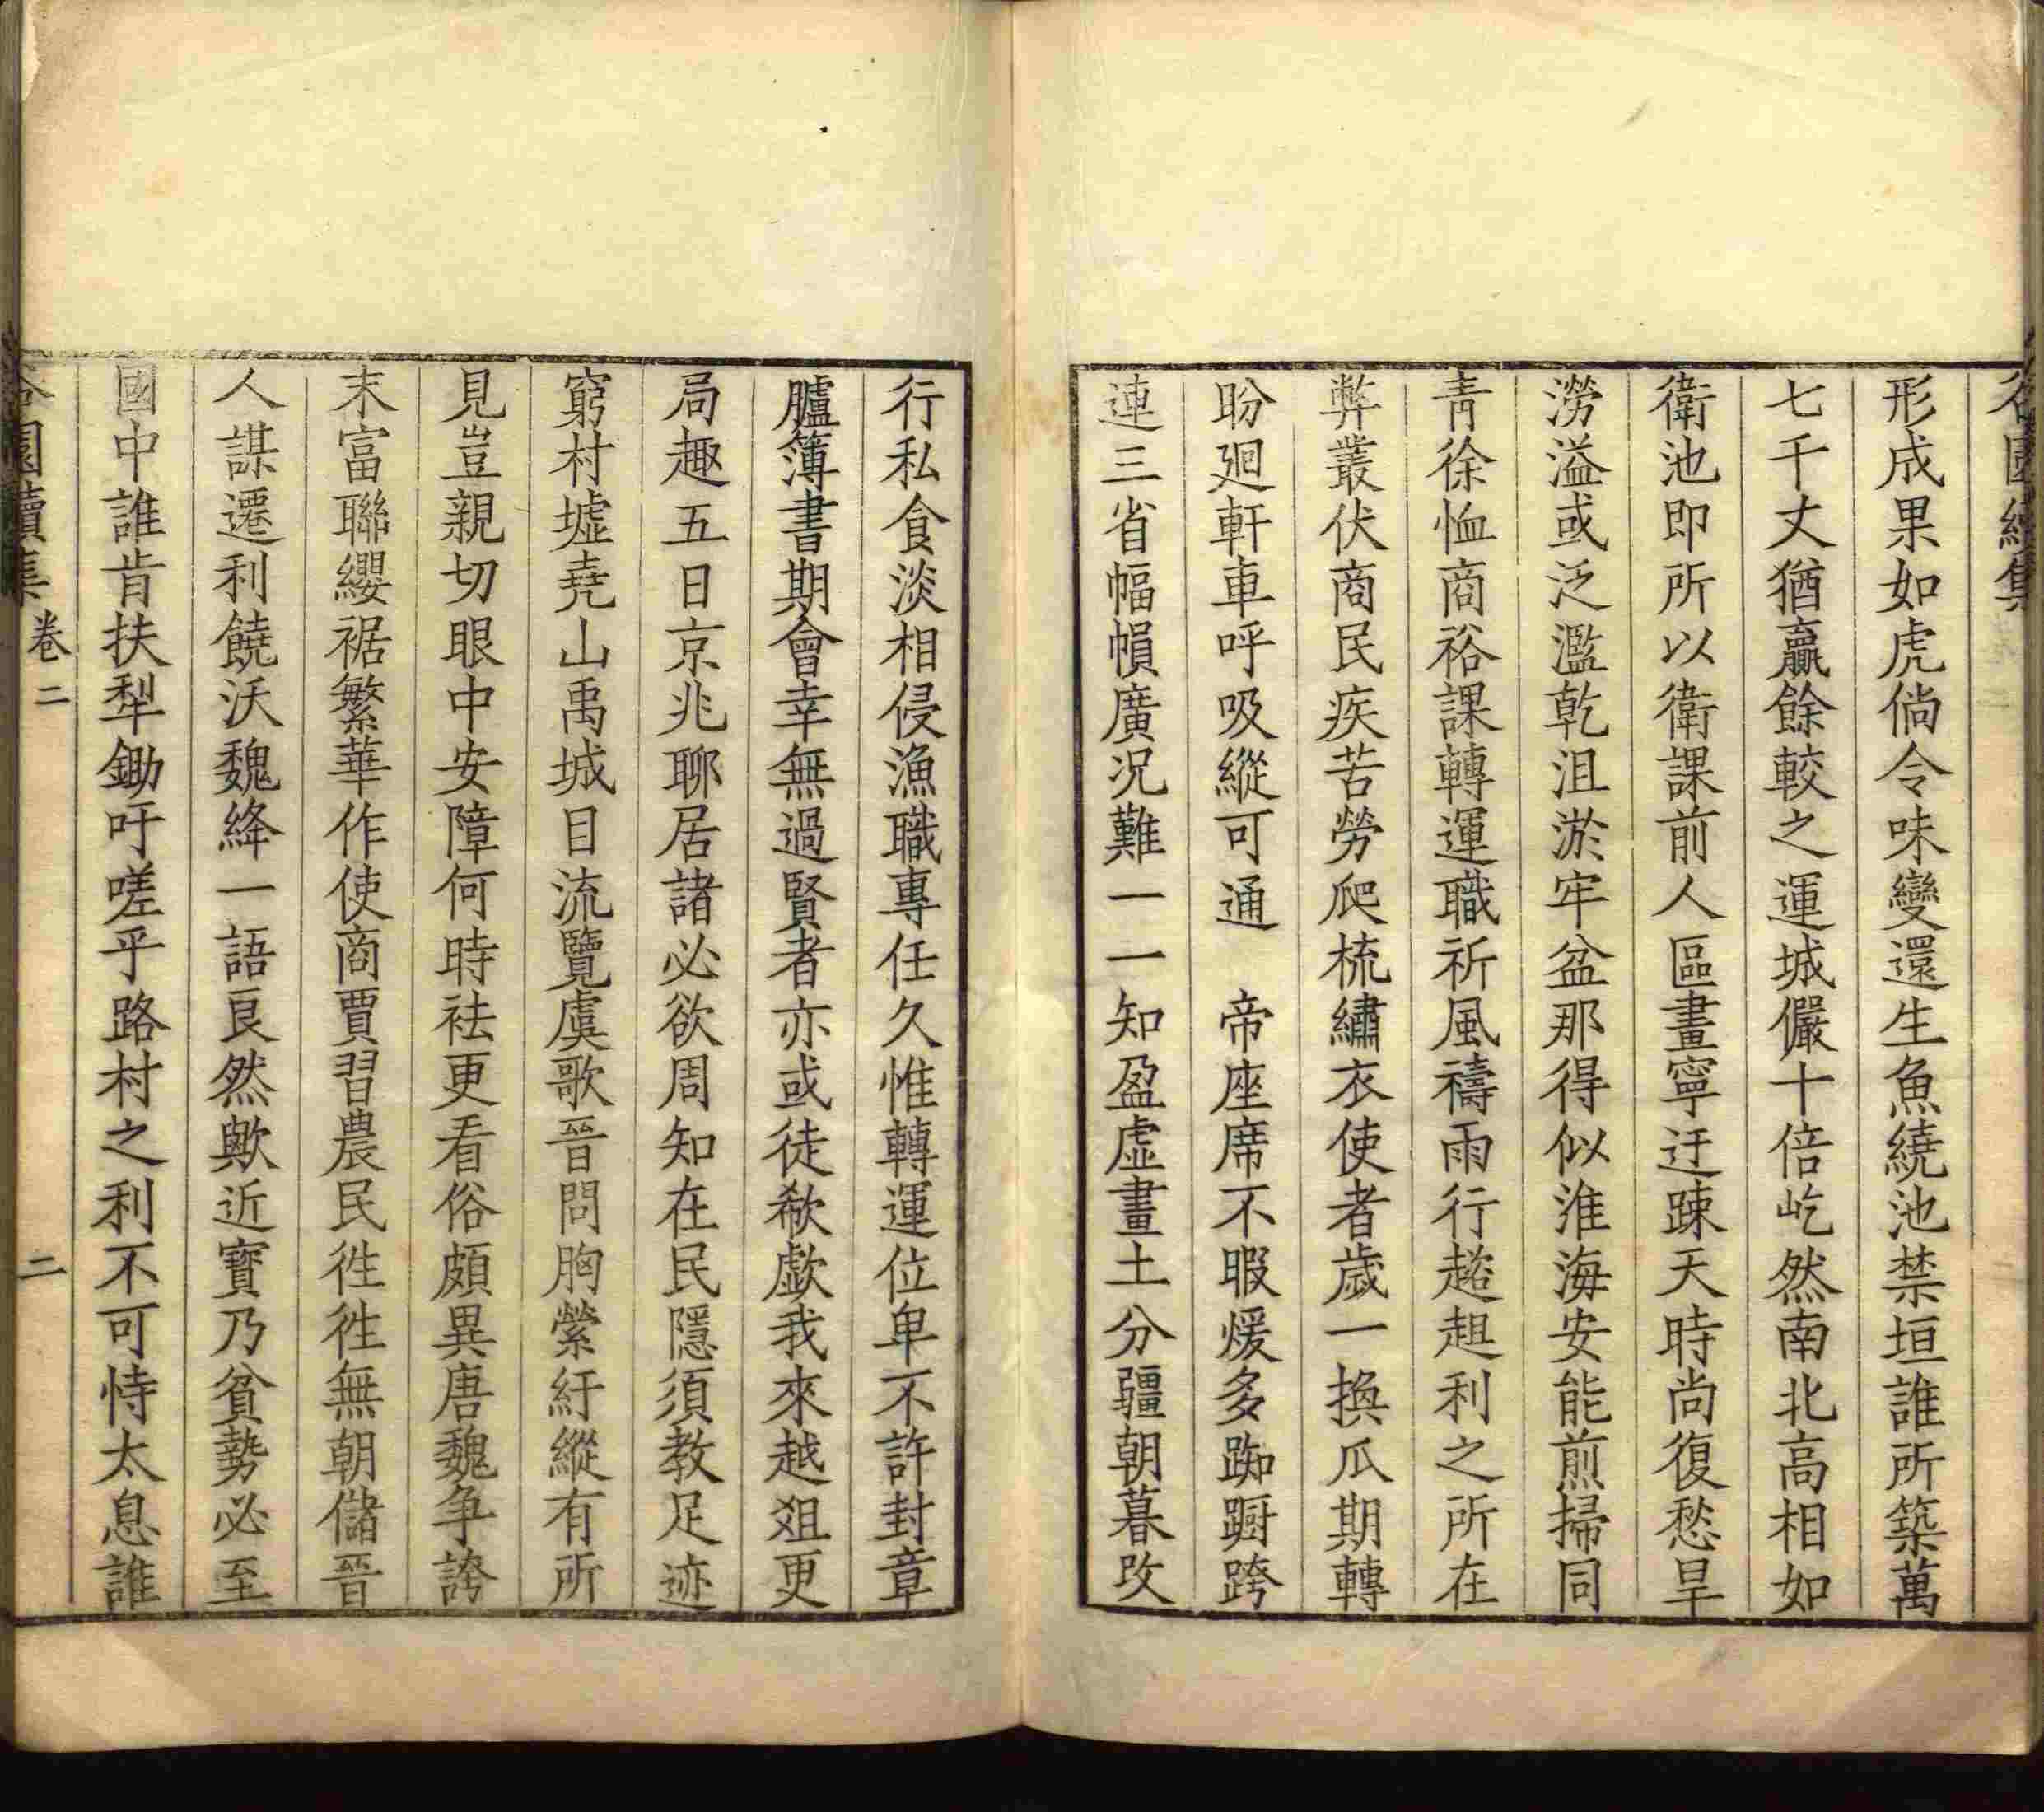 形成果如虎倘令味變還生魚繞池禁垣誰所築萬
七千丈猶贏餘較之運城儼十倍屹然南北高相如
衛池即所以衛課前人區畫寧迂踈天時尚復愁旱
澇溢或泛濫乾沮淤牢盆那得似淮海安能煎掃同
青徐恤商裕課轉運職祈風禱雨行趦趄利之所在
弊叢伏商民疾苦勞爬梳繡衣使者歲一換瓜期轉
盼廻軒車呼吸縱可通　帝座席不暇煖多踟躕跨
連三省幅幀廣况難一一知盈虛畫土分疆朝暮改
行私食淡相侵漁職專任久惟轉運位卑不許封章
臚簿書期會幸無過賢者亦或徒欷歔我來越爼更
局趣五日京兆聊居諸必欲周知在民隱須教足迹
窮村墟堯山禹城目流覽虞歌晉問胸縈紆縱有所
見豈親切眼中安障何時袪更看俗頗異唐魏爭誇
末富聯纓裾繁華作使商賈習農民徃徃無朝儲晉
人謀遷利饒沃魏絳一語良然歟近寶乃貧勢必至
國中誰肯扶犁鋤吁嗟乎路村之利不可恃太息誰
園續集 卷二 二